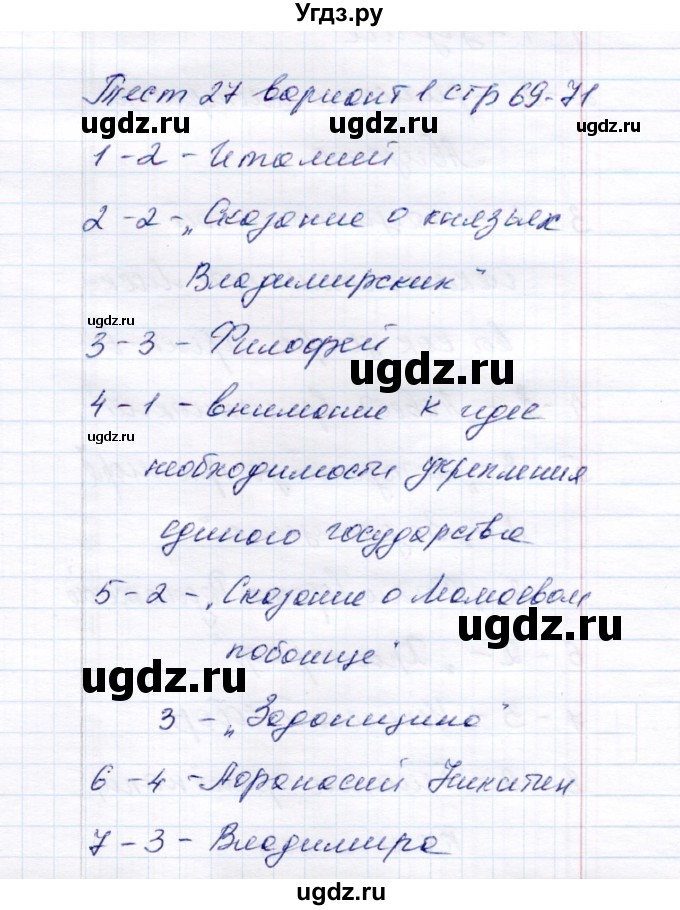 Угдз.ру
Тест 27 вариант 1 стр 69-71
ugdz.ru ugdz.ru
1 - 2 - Италией
2 - 2 - „Сказание о князьях
Владимирских"
ugdz.ru
3 - 3 - Филофей
ugdz.ru
4 - 1 - внимание к идее
ugdz.ru
необходимости укрепления
единого государства
5 - 2 - „Сказание о Мамаевом
ugdz.ru
побоище"
ugdz.ru
3 - „Задонщина"
6 - 4 - Афанасий Никитин
7 - 3 - Владимира
ugdz.ru